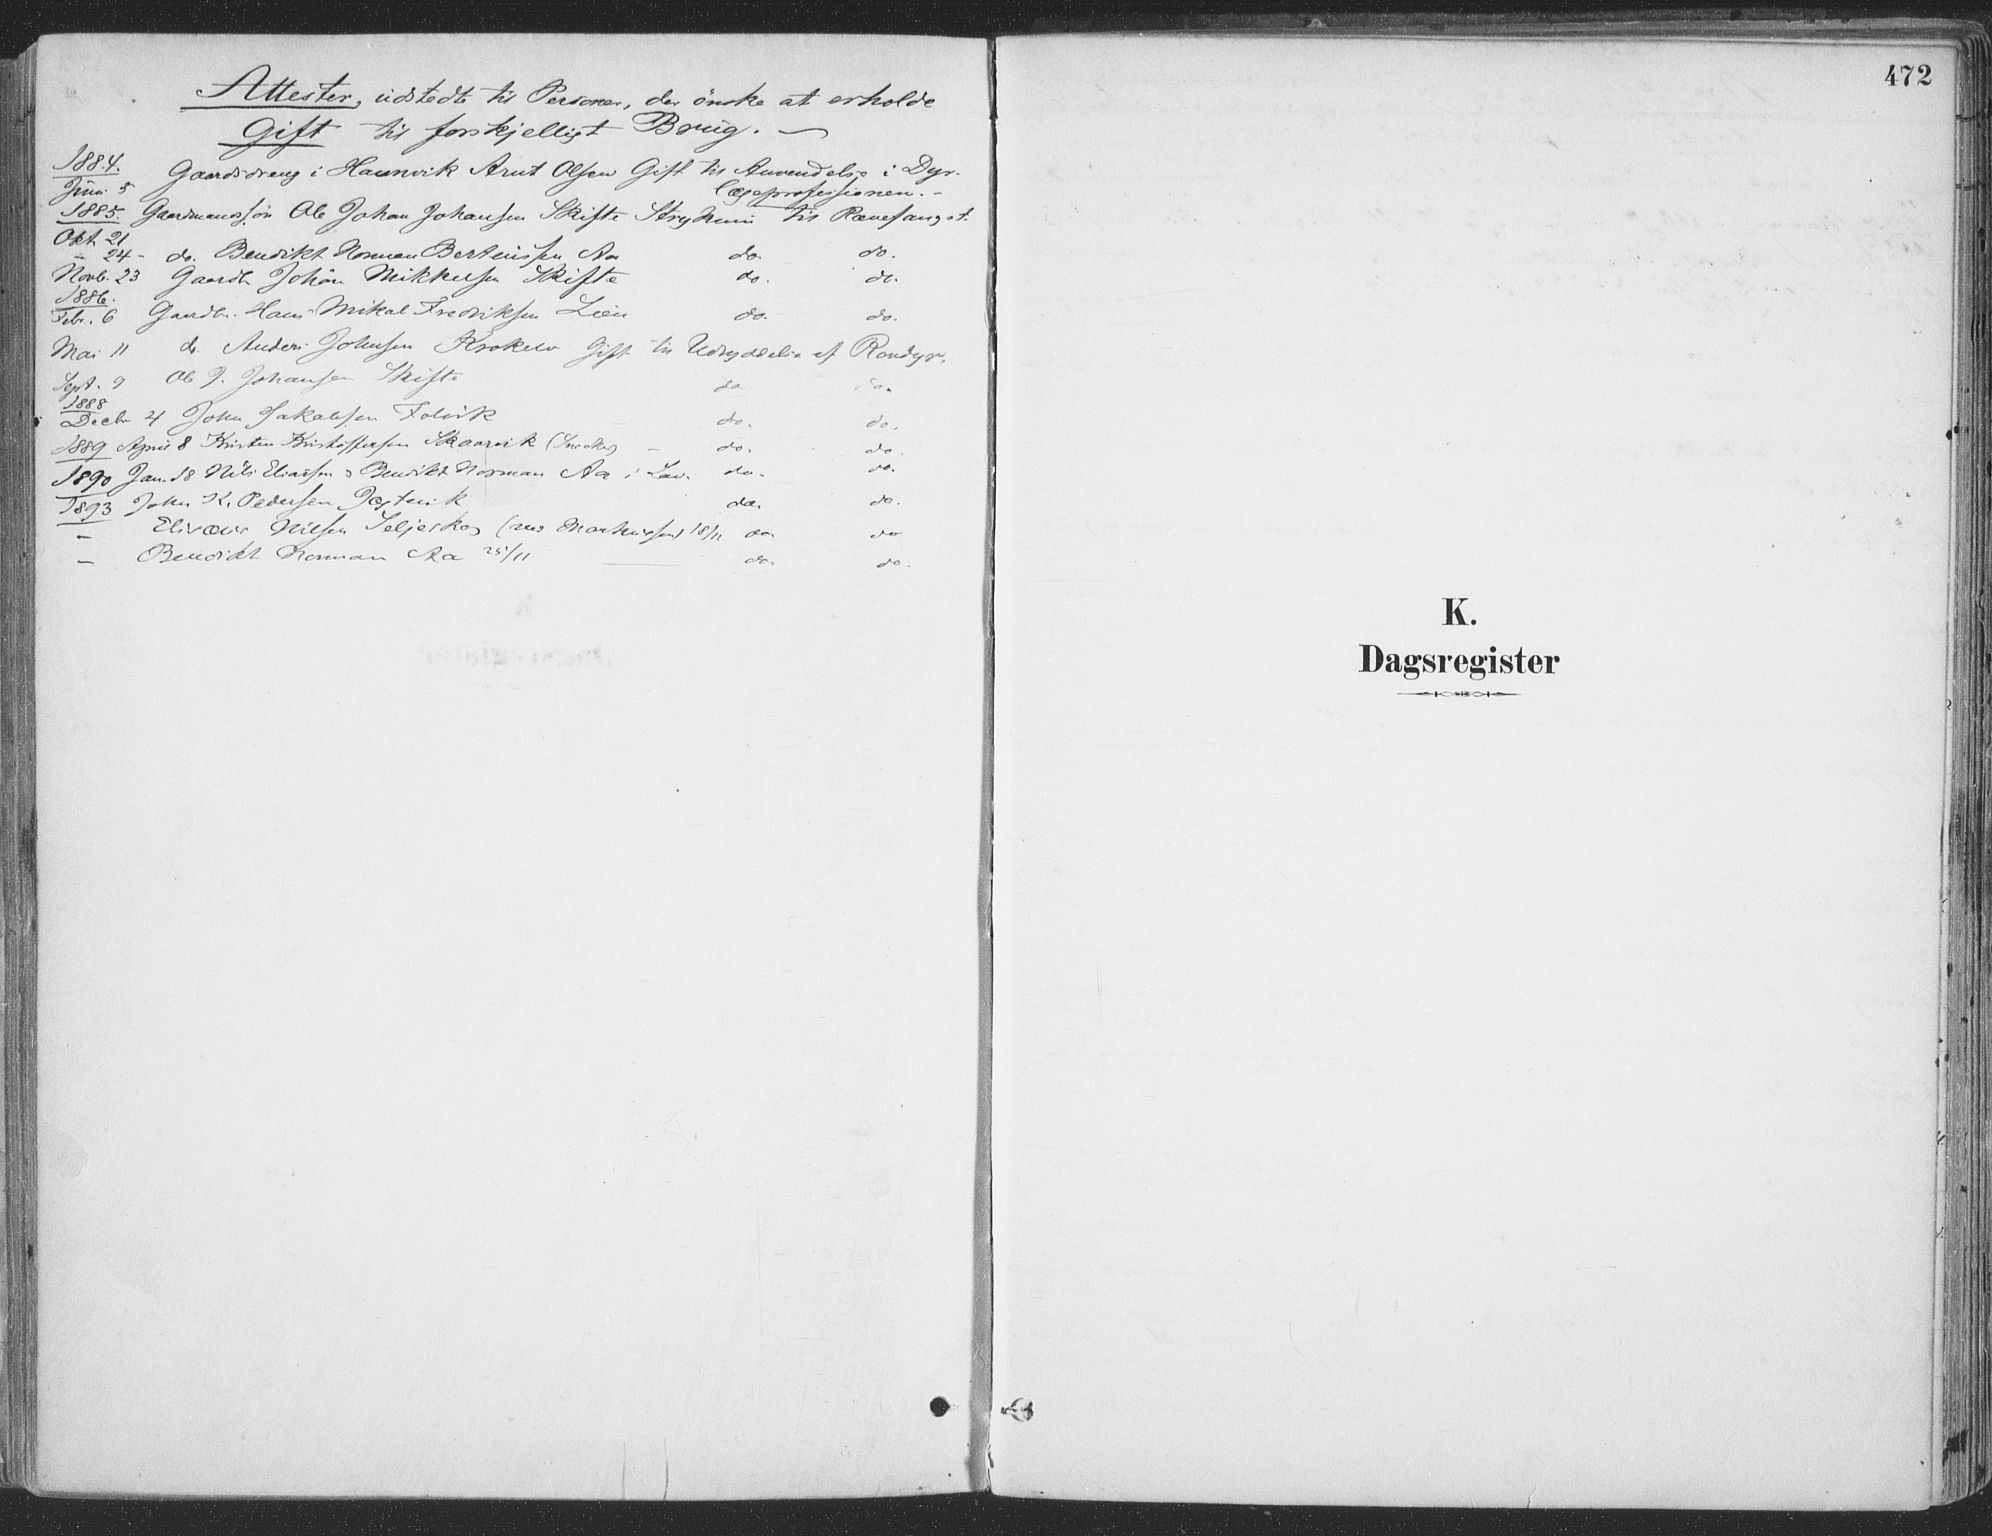 Attester, udstedte til Personer, der önske at erholde
Gift til forskjelligt Brug. —
1884.
Juni 5 Gaardsdreng i Haunvik Arnt Olsen Gift til Anvendelse i Dyr-
lægeprofessionen. -
1885. Gaardmanssøn Ole Johan Johansen Skifte Stryknin til Rævefangst.
Okt. 21
- 24 - do. Benedikt Norman Berteussen Aa do. do.
Novb. 23 Gaardb. Johan Mikkelsen Skifte do. do.
1886.
Febr. 6 Gaardbr. Hans Mikal Fredriksen Lien do. do.
Mai 11 do. Anders Johnsen Gift til Udryddelse af Rovdyr.
Sept. 9 Ole J. Johansen Skifte do do.
1888
Decbr 4 John Jakobsen Folvik do. do.
1889 April 8 Kristen Kristoffersen Skaarvik - do. do.
1890 Jan. 18 Nils Eliassen & Benedikt Norman Aa i do. do.
1893 John K. Pedersen do. do.
- Nilsen Seljeskog 18/11 do do
- Benedikt Norman Aa 25/11 do. do.
472
K.
Dagsregister